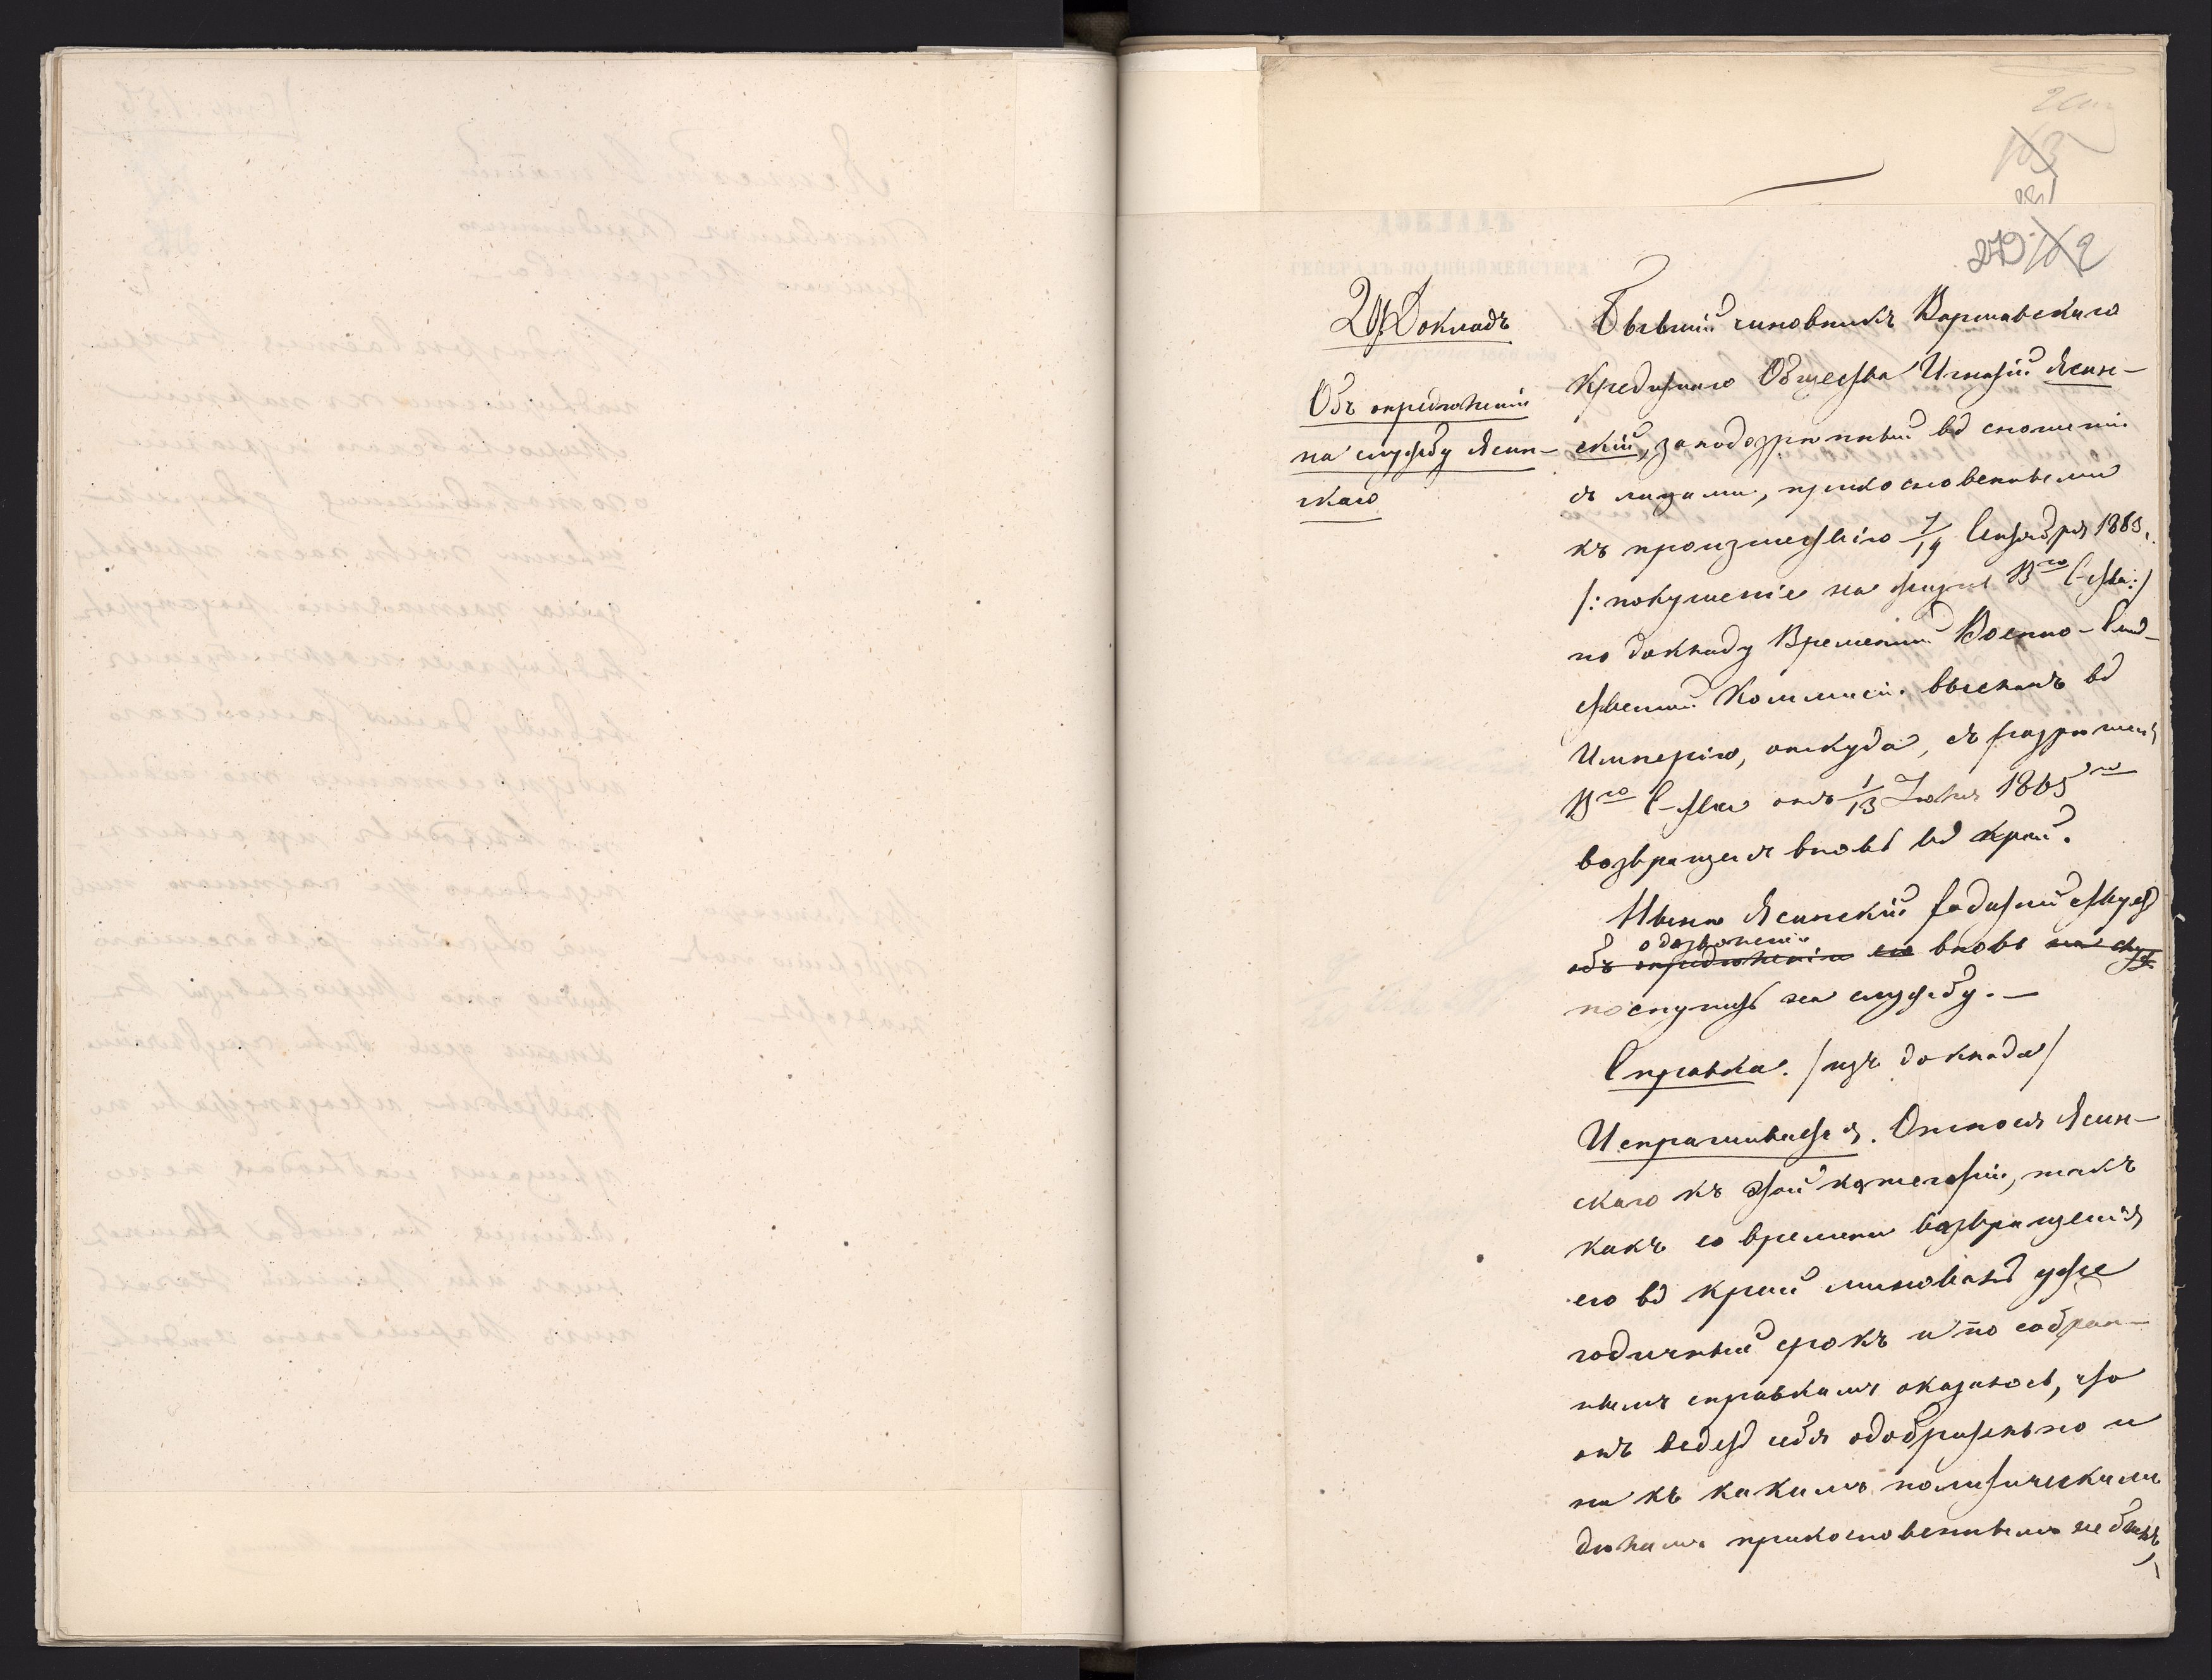 163
281
279 162
Докладъ
Объ опредѣленіи
на службу Ясин-
скаго
Бывшій чиновникъ Варшавскаго
Кредитнаго Общества Игнатій Ясин-
скій, заподозрѣнный въ сношеніи
съ лицами, прикосновенными
къ произшествію 7/19 Сентября 1863 г.
/: покушеніе на жизнь В го С-ства :/
по докладу Временной Военно-Слѣд-
ственной Коммисіи высланъ въ
Имперію, откуда, съ разрѣшенія
В го С-ства отъ 1/13 Іюля 1865 го
возвращенъ вновь въ край.
Нынѣ Ясинскій ходатайствуетъ
о дозволеніи
объ опредѣленіи его вновь на служ.
поступить на службу. —
Справка. /изъ доклада/
Испрашивается. Относя Ясин-
скаго къ этой категоріи, такъ
какъ со времени возвращенія
его въ край миновалъ уже
годичный срокъ и по собран-
нымъ справкамъ оказалось, что
онъ ведетъ себя одобрительно и
ни къ какимъ политическимъ
дѣламъ прикосновеннымъ не былъ,